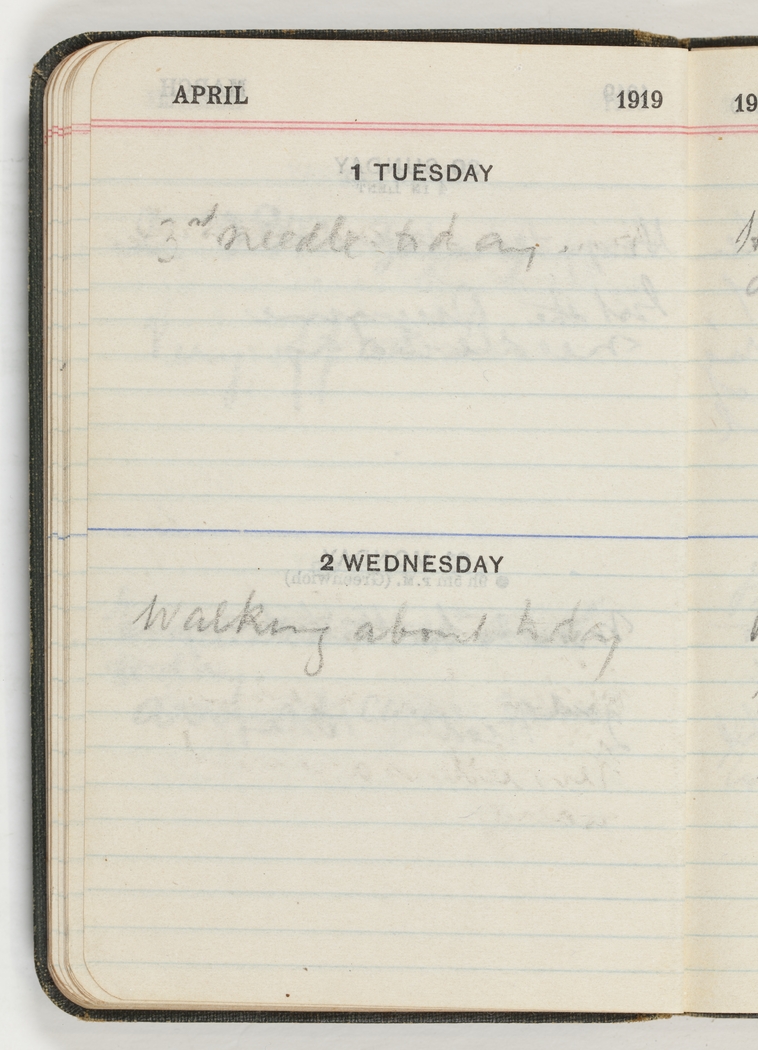 APRIL 1919
1 TUESDAY
3rd needle today.
2 WEDNESDAY
Walking about today
19